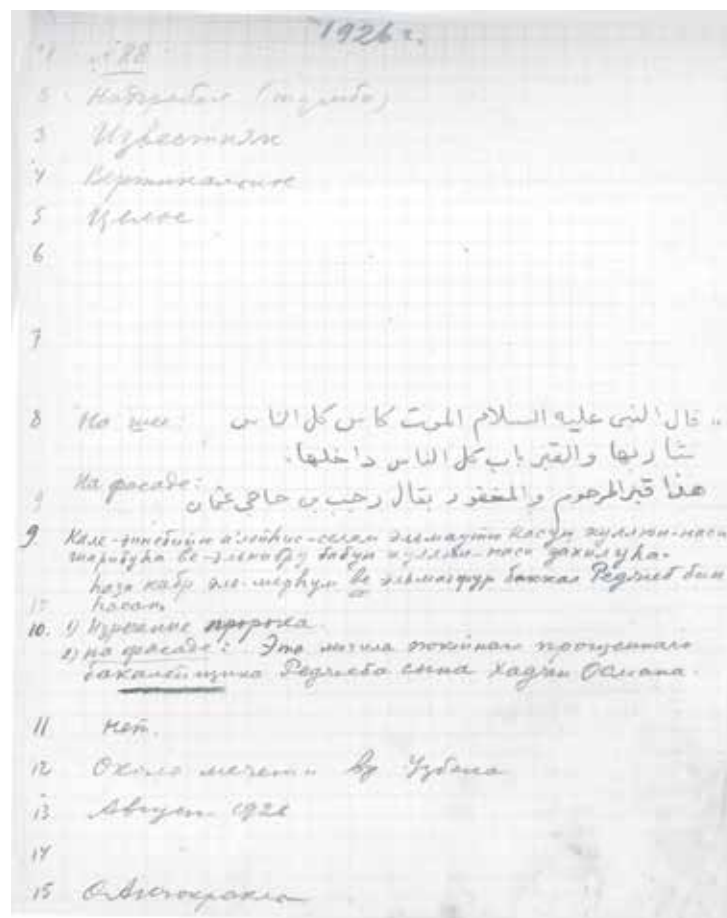 1926 г.
1 №88
2 Надгробие (тумба)
3 Известняк
4 Вертикальное
5 Целое
6
7
8 На шее: قال النبى عليه السلام الموت كاس كل الناس
شاربها والقبر باب كل الناس داخلها.
На фасаде: هذا قبر المرحوم والمغفور بقال رجب بن حاجى عثمان
9
9. Кале-ннебийю алейхис-селам эльмауту касун куллю-наси
шарибуха ве-элькабру бабун куллю-наси дахилуха.
һаза кабр эле-мерхум ве эльмагфур баккал Реджеб бин
һасан
10. 1) Изречение пророка
2) на фасаде: Это могила покойнаго прощеннаго
бакалейщика Реджеба сына хаджи Османа.
11 Нет.
12 Около мечети Узбека
13 Август 1926
14
15 О. Акчокракло